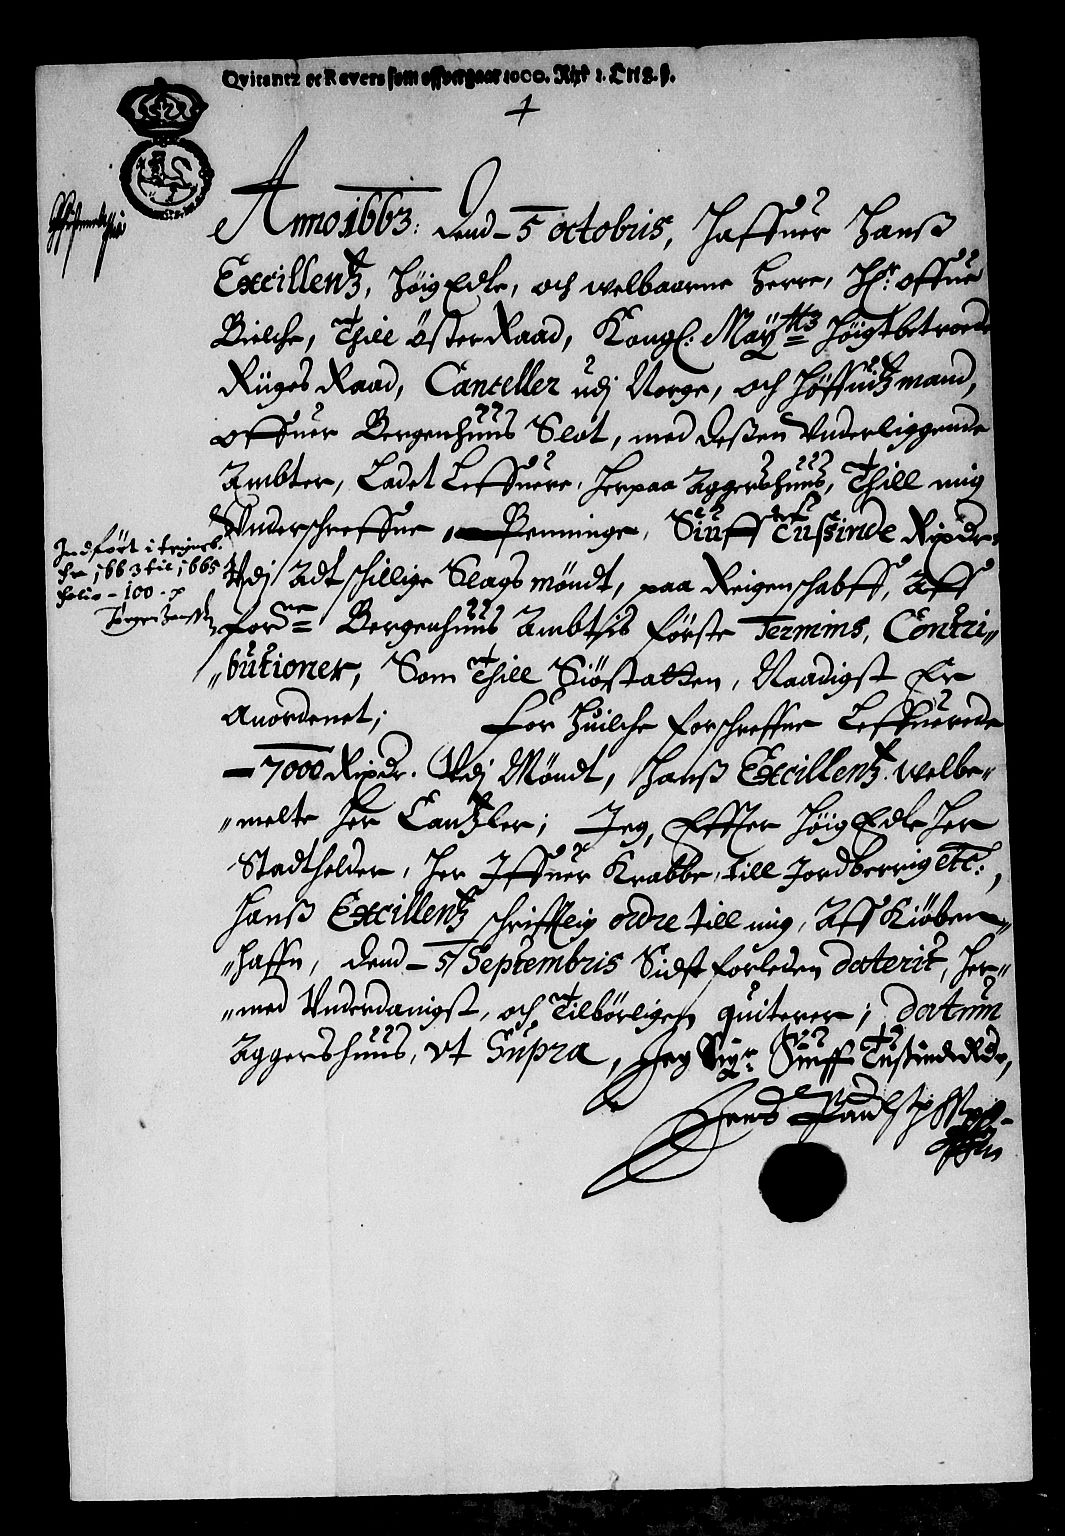 Qvitantz et Revers som offuergaar 1000. Rixd 1. Ort 8. ß.
Anno 1663: Dend - 5 octobris, Haffuer Hanß
Excillentz, HöigEdle, och welbaarne Herre, Hr: offue
Bielche, Thill ÖsterRaad, Kongl: Maÿttz Höigtbetroede
Riigens Raad, Canteller udj Norge, och Höffuitzmand,
offuer Bergenhuus Slot, med deßen Vnderliggende
Ambter, Ladet Leffuere, Herpaa Aggershuus, Thill mig
Vnderschreffne, Penninge, Siuff Tussinde Rixdr:
Vdj Adt schillige Slags möndt, paa Reigenschabff, Aff
forne Bergenhuus Ambtis förste Termins, Contri„
„butioner, Som Thill Siöstatten, Naadigst Er
Anordenet; for Huilche forschreffne Leffuerede
- 7000 Rixdr. Vdj Möndt, Hanß Excillentz welbe„
„melte Her Cantzler; Jeg, Effter HöigEdle Her
Stadtholder, Her Iffuer Krabbe, till Jordberrig etc:,
Hanß Excillentz schrifftlig ordre till mig, Aff Kiöben„
„haffn, Dend - 5 Septembris Sidst forleden daterit, Her„
„med Vnderdanigst, och Tilbörligen quiterer; datum
Aggershuus, vt Supra, Jeg Siger Siuff Tusinde Rdr,
Jndfört i reignsb.
fra 1663 til 1665
folio - 100 - p
Jörgen Hanssen